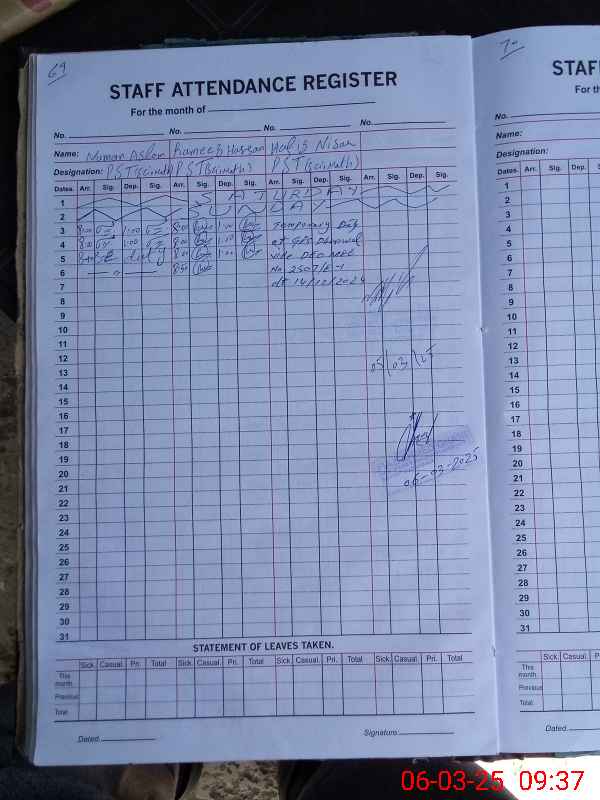 69
STAFF ATTENDANCE REGISTER
For the month of
No. No. No. No.
Name: Noman Aslam Rameez Hassan Hafiz Nisar
Designation: PST(Sci Math) PST(Sci Math) PST(Sci Math)
Dates. Arr. Sig. Dep. Sig. Arr. Sig. Dep. Sig. Arr. Sig. Dep. Sig. Arr. Sig. Dep. Sig.
1 SATURDAY
2 SUNDAY
3 8:00 1:00 8:00 1:00 Temporary Duty
4 8:00 1:00 8:00 1:00 at GPS
5 duty 8:00 1:00 vide DEO
6 8:00 No 2507/E-1
7 dt 14/12/2024
8
9
10
11
12
13 05/03/25
14
15
16
17
18
19
20
21 06-03-2025
22
23
24
25
26
27
28
29
30
31
STATEMENT OF LEAVES TAKEN.
Sick. Casual. Pri. Total Sick. Casual. Pri. Total Sick. Casual. Pri. Total Sick. Casual. Pri. Total
This month.
Previous
Total
Dated. Signature.
70
STAF
For th
No.
Name:
Designation:
Dates. Arr. Sig. Dep. Sig.
1
2
3
4
5
6
7
8
9
10
11
12
13
14
15
16
17
18
19
20
21
22
23
24
25
26
27
28
29
30
31
Sick. Casual. Pri.
This month.
Previous
Total
Dated.
06-03-25 09:37